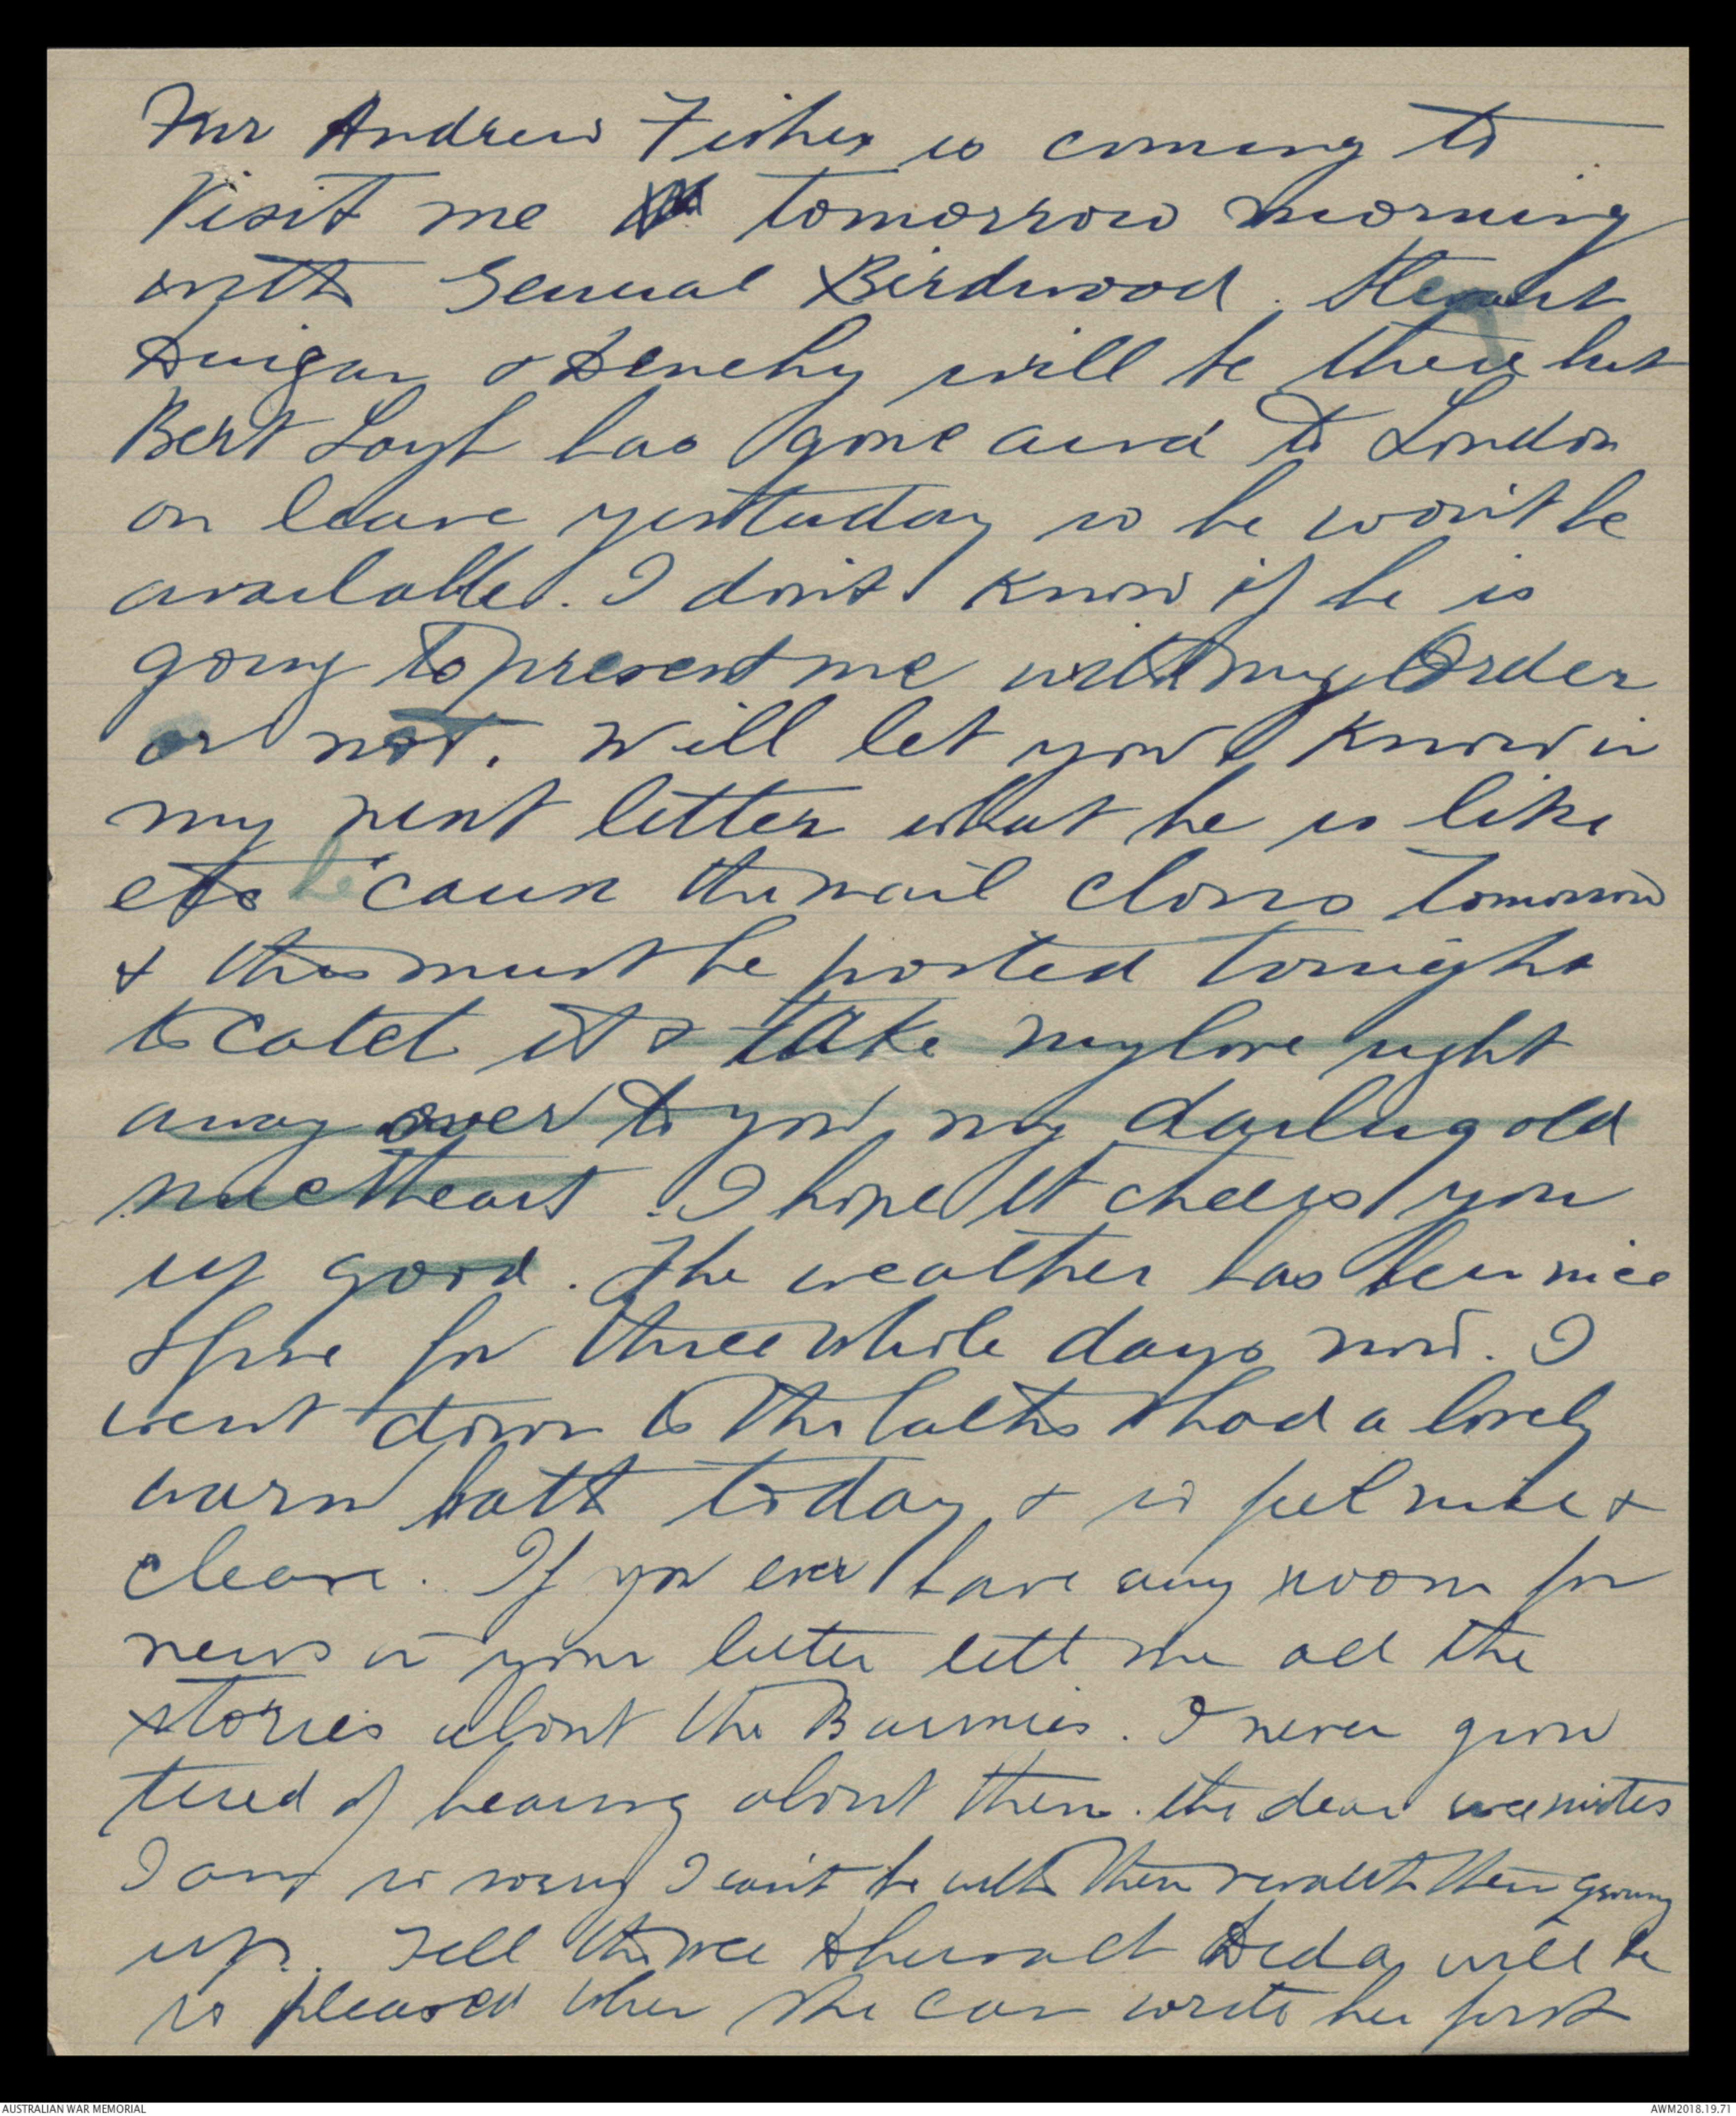 Mr Andrew Fisher is coming to
visit me tomorrow morning
with General Birdwood.
Duigan & Denehy will be there but
Bert Layh has gone awa' to London
on leave yesterday so he won't be
available. I don't know if he is
going to present me with my Order
or not. Will let you know in
my next letter what he is like
etc 'cause the mail closes tomorrow
& this must be posted tonight
to catch it & take my love right
away over to you my darling old
sweetheart. I hope it cheers you
up good. The weather has been nice
& fine for three whole days now. I
went down to the baths & had a lovely
warm bath today & so feel nice &
clean. If you ever have any room for
news in your letter tell me all the
stories about the Bairnies. I never grow
tired of hearing about them. the dear wee mites
I am so sorry I can't be with them & watch them growing
up. Tell the wee Deda will be
so pleased when she can write her first
AUSTRALIAN WAR MEMORIAL
AWM2018.19.71